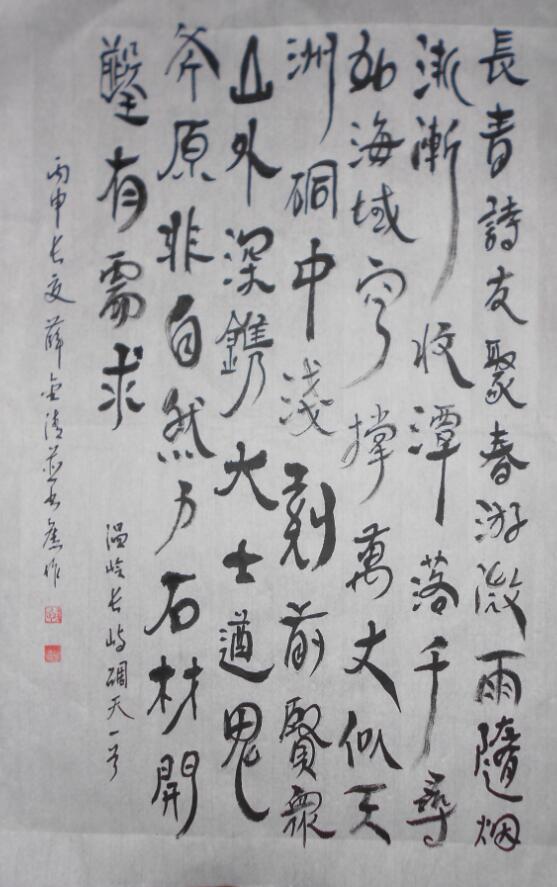 長青詩友聚春游微雨隨烟
漸漸收潭落千尋
如海域穹撑萬丈似天
洲硐中淺刻前賢眾
山外深鐫大士遒鬼
斧原非自然力石材開
鑿有需求
温岭长屿硐天一
丙申长夏薛金清作